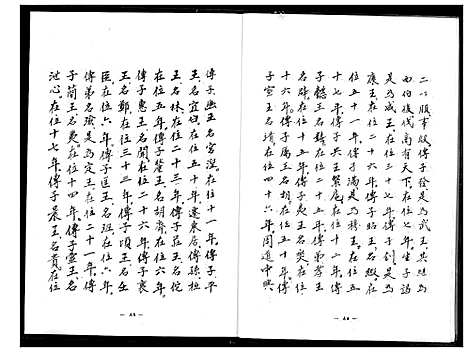 二以服事殷傳子發是為武王其弟為
西伯後伐商有天下在位七年生子誦
是為成王在位
康王在位二十六年傳子昭王名瑕在
五十一年傳子滿是為穆王在位五
十七年傳子共王繄扈在位十二年傳
子懿王名囏在位二十五年傳弟孝王
名辟在位十五年傳子夷王名燮在位
十六年傳子厲王名胡在位五十年傳
子宣王名靖在位四十六年周道中興
傳子幽王名宮湼在位十一年傳子平
王名宜臼在位五十年遂東居傳孫桓
王名林在位二十三年傳子莊王名佗
在位五年傳子釐王名胡齊在位六年
傳子惠王名閬在位二十六年傳子襄
王名鄭在位三十三年傳子頃王名壬
臣在位六年傳子匡王名班在位六年
傳弟名瑜是為定王在位二十一年傳
子簡王名夷在位十四年傳子靈王名
泄心在位十七年傳子景王名貴在位